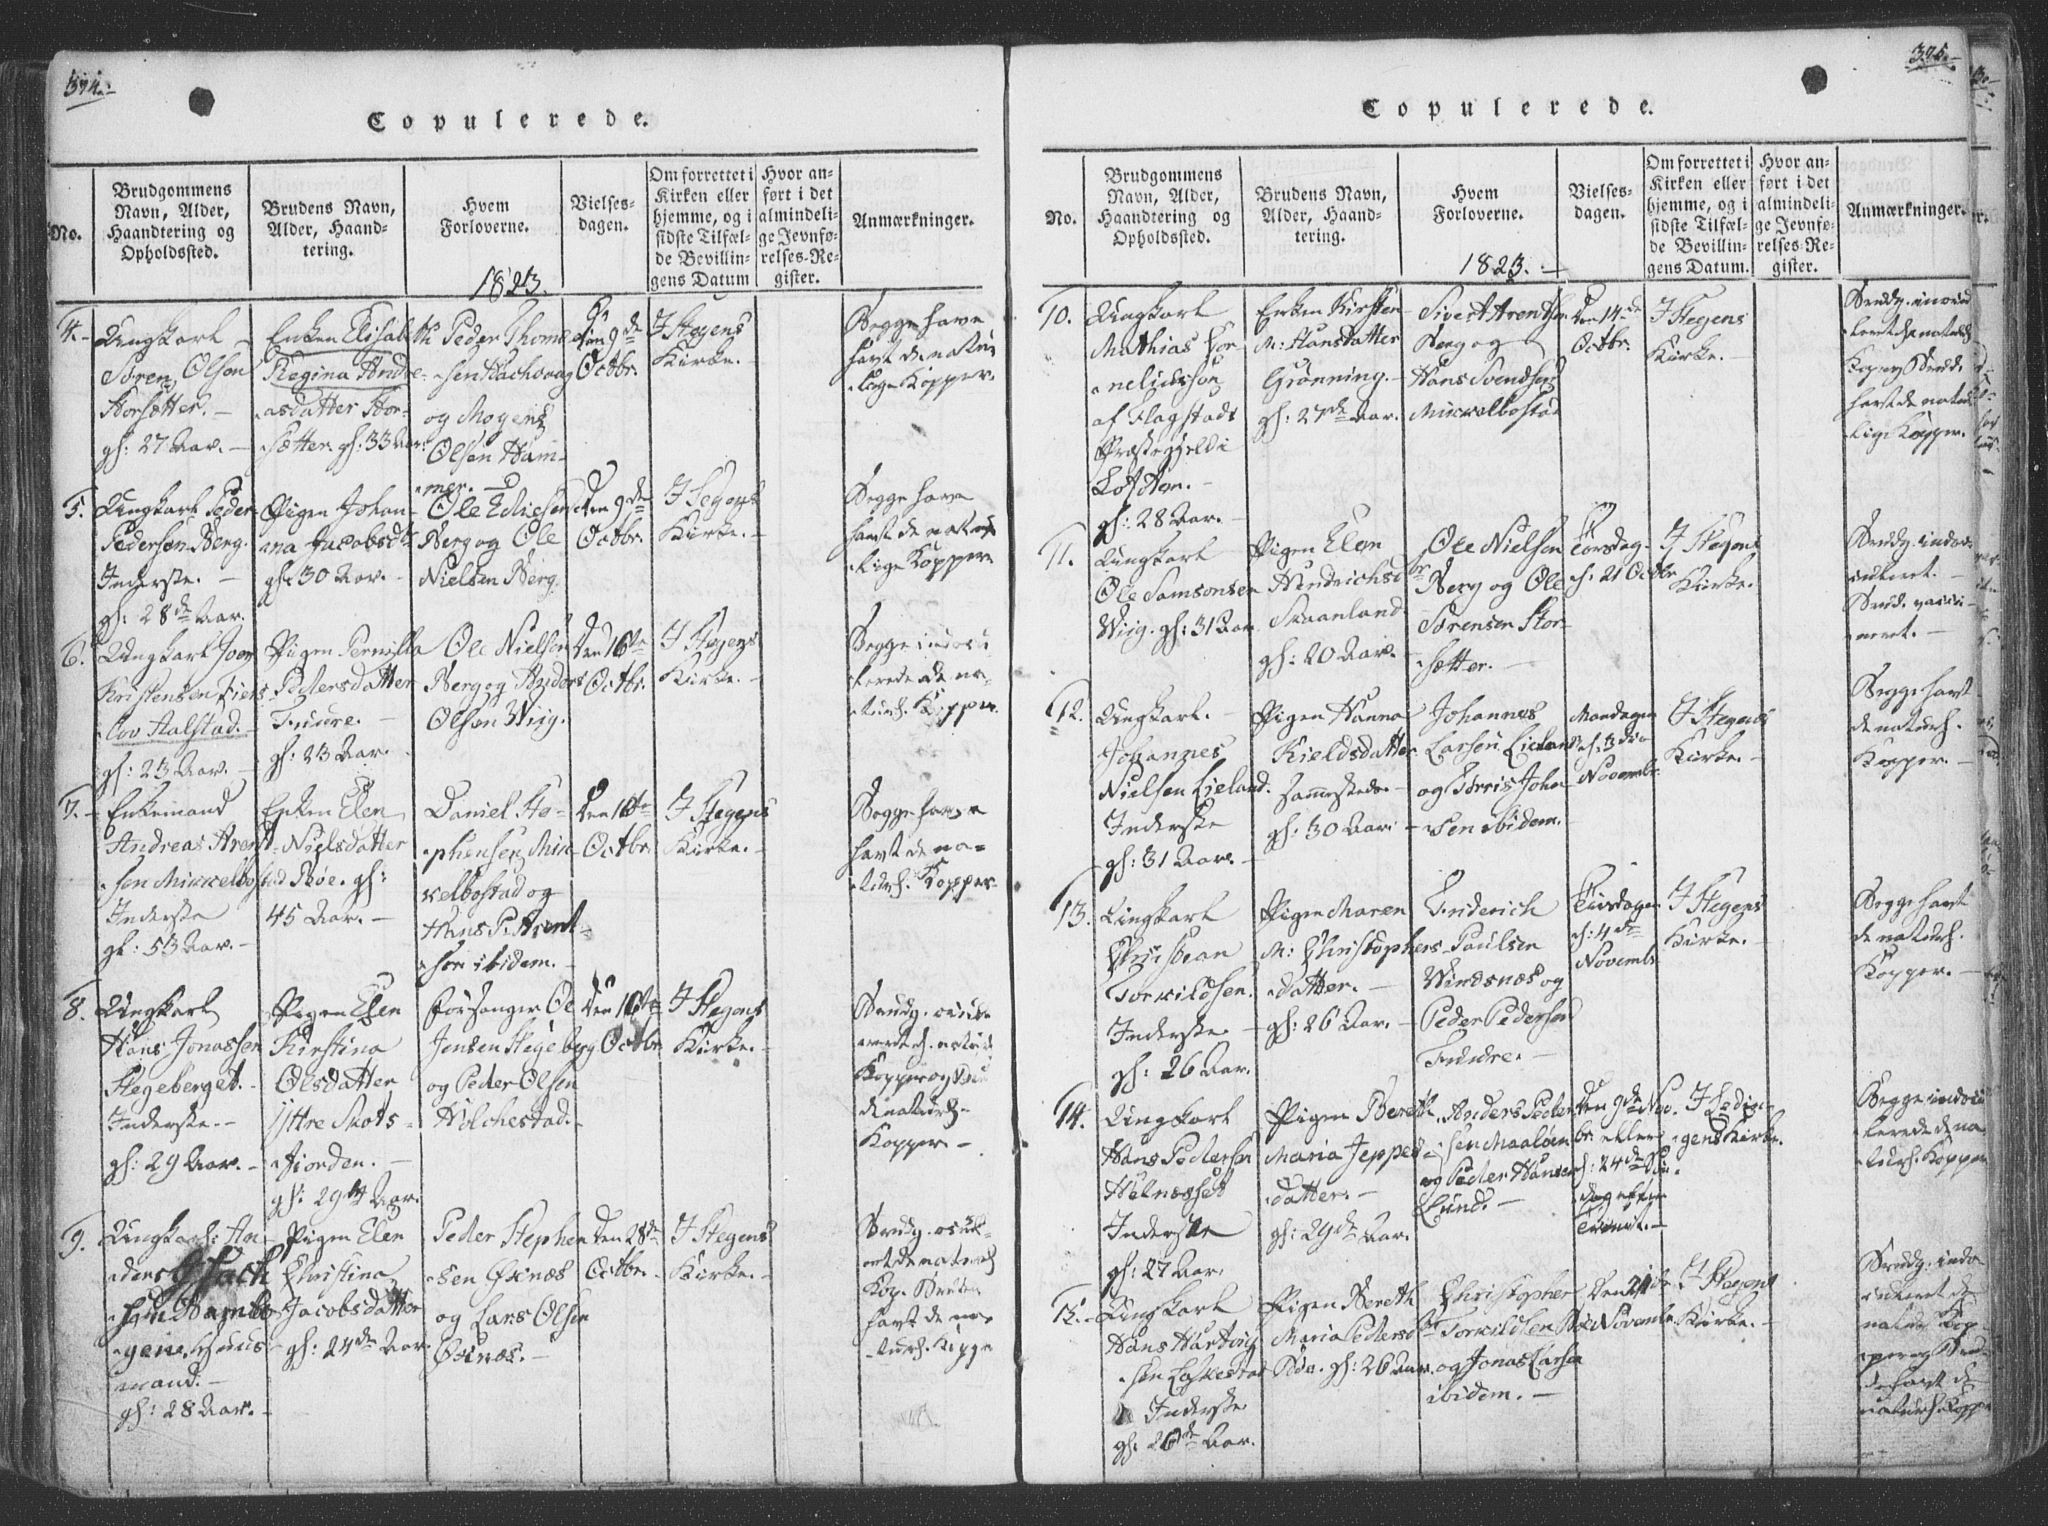 394.
Copulerede.
No.
Brudgommens
Navn, Alder,
Haandtering og
Opholdssted.
Brudens Navn,
Alder, Haand-
tering.
Hvem
Forloverne.
1823.
Vielses-
dagen.
Om forrettet i
Kirken eller
hjemme, og i
sidste Tilfæl-
de Bevillin-
gens Datum
Hvor an-
ført i det
almindeli-
ge Jevnfø-
relses-Re-
gister.
Anmærkninger.
4.
Ungkarl
Sören Olson
Storsætter.
gl: 27 Aar.
Enken Elisabeth
Regina Andre-
asdatter Stor-
sætter. gl: 33 Aar.
Peder Thom-
og Mogens
Olsen Ham-
mer.
den 9de
Octbr.
I Stegens
Kirke.
Begge have
havt de natur-
lige Kopper.
5.
Ungkarl Peder
Pedersen Berg.
Inderste.
gl: 28de Aar.
Pigen Johan-
na Jacobsdtr
gl: 30 Aar.
Ole
Berg og Ole
Nielsen Berg.
Den 9de
Octbr.
I Stegens
Kirke.
Begge have
havt de natur-
lige Kopper
6.
Ungkarl Joen
Kristensen
Aalstad.
gl: 23 Aar.
Pigen Pernilla
Pedersdatter
Furure.
gl: 23 Aar.
Ole Nielsen
Berg og Anders
Olsen Wiig.
Den 16de
Octbr.
I Stegens
Kirke.
Begge
de na-
turl. Kopper.
7.
Enkemand
Andreas Arent-
sen Mikkelbostad
Inderste
gl: 53 Aar.
Enken Elen
Nielsdatter
Bøe. gl:
45 Aar.
Daniel Ste-
phensen Mik-
kelbostad og
Hans P. Arent-
sen ibidem.
Den 16de
Octbr.
I Stegens
Kirke.
Begge have
havt de na-
turl. Kopper.
8.
Ungkarl
Hans Jonassen
Stegeberget.
Inderste.
gl: 29 Aar.
Pigen Elen
Kirstina
Olsdatter
Yttre Skots-
fiorden.
gl: 29 1/4 Aar.
Forsanger Ole
Jensen Stegeberg
og Peder Olsen
Holchestad.
Den 16de
Octbr.
I Stegens
Kirke.
Brudg.
Kopper og
de naturl.
Kopper
9.
Ungkarl: An-
ders
gene, Huus-
mand.
gl: 28 Aar.
Pigen Elen
Christina
Jacobsdatter
gl: 24de Aar
Peder Stephen-
sen Øxnæs
og Lars Olsen
Øxnæs.
Den 28de
Octbr.
I Stegens
Kirke.
Brudg.
Kop. Bruden
havt de na-
turl. Koppe
395.
Copulerede.
No.
Brudgommens
Navn, Alder,
Haandtering og
Opholdssted.
Brudens Navn,
Alder, Haand-
tering.
Hvem
Forloverne.
1823.
Vielses-
dagen.
Om forrettet i
Kirken eller
hjemme, og i
sidste Tilfæl-
de Bevillin-
gens Datum.
Hvor an-
ført i det
almindeli-
ge Jevnfø-
relses-Re-
gister.
Anmærkninger.
10.
Ungkarl
Mathias Cor-
neliussen
af Flagstads
Præstegjeld i
Lofoten.
gl: 28 Aar.
Enken Kirsten
M: Hansdatter
Grönning.
gl: 27de Aar.
Sivert Arentsen
Berg og
Hans Svendsen
Mikkelbostad
Den 14de
Octbr.
I Stegens
Kirke.
Kop og Brud.
havt de natur-
lige Kopper.
11.
Ungkarl
Ole Samsonsen
Wiig. gl: 31 Aar
Pigen Elen
Hendrichsdtr
Skaanland
gl: 20 Aar.
Ole Nielsen
Berg og Ole
Sørensen Stor-
sætter.
Torsdag.
d: 21 Octbr
I Stegens
Kirke.
Brud. vacci-
neret.
12.
Ungkarl.
Johannes
Nielsen Lieland.
Inderste
gl: 31 Aar.
Pigen Hanna
Kieldsdatter
sammesteds.
gl: 30 Aar.
Johannes
Larsen Lieland
og Tørris John-
sen ibidem.
Mandagen
d: 3die
Novembr.
I Stegens
Kirke.
Begge havt
de naturl.
Kopper.
13.
Ungkarl
Torkildsen.
Inderste.
gl: 26 Aar.
Pigen Maren
M: Christophers-
datter.
gl: 26 Aar.
Friderich
Paulsen
Windsnæs og
Peder Pedersen
Furure.
Tirsdagen
d: 4de
Novembr
I Stegens
Kirke.
Begge havt
de naturl.
Kopper.
14.
Ungkarl
Hans Pedersen
Helnæsset
Inderste
gl: 27 Aar.
Pigen Bereth
Maria Jeppes-
datter.
gl: 29de Aar.
Anders Peder-
sen Maaløen
og Peder Hansen
Lund.
Den 9de Nov.
br. eller
d: 24de Søn-
dag efter
Trinit.
I Ledin-
gens Kirke.
Begge
de na-
turl. Kopper
15.
Ungkarl
Hans Hartvig-
sen Laskestad
Inderste
gl: 26de Aar.
Pigen Bereth
Maria Pedersdtr
Bøe. gl: 26 Aar.
Christopher
Torkildsen Bøe
og Jonas Larsen
ibidem.
Den 21de
Novembr.
I Stegens
Kirke.
Brudg.
de havt de
naturl. Kopp